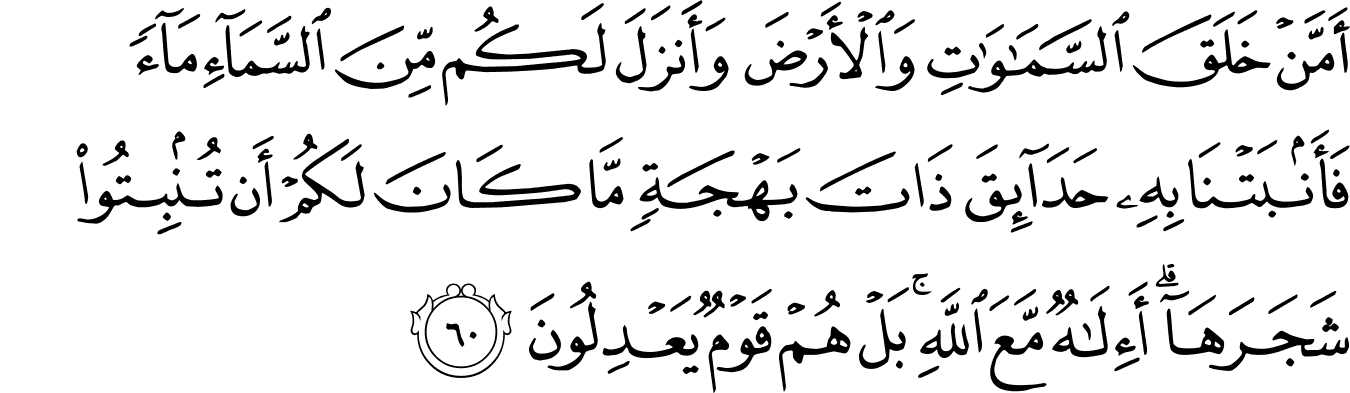 أَمَّنۡ خَلَقَ ٱلسَّمَٰوَٰتِ وَٱلۡأَرۡضَ وَأَنزَلَ لَكُم مِّنَ ٱلسَّمَآءِ مَآءٗ
فَأَنۢبَتۡنَا بِهِۦ حَدَآئِقَ ذَاتَ بَهۡجَةٖ مَّا كَانَ لَكُمۡ أَن تُنۢبِتُواْ
شَجَرَهَآۗ أَءِلَٰهٞ مَّعَ ٱللَّهِۚ بَلۡ هُمۡ قَوۡمٞ يَعۡدِلُونَ ٦٠